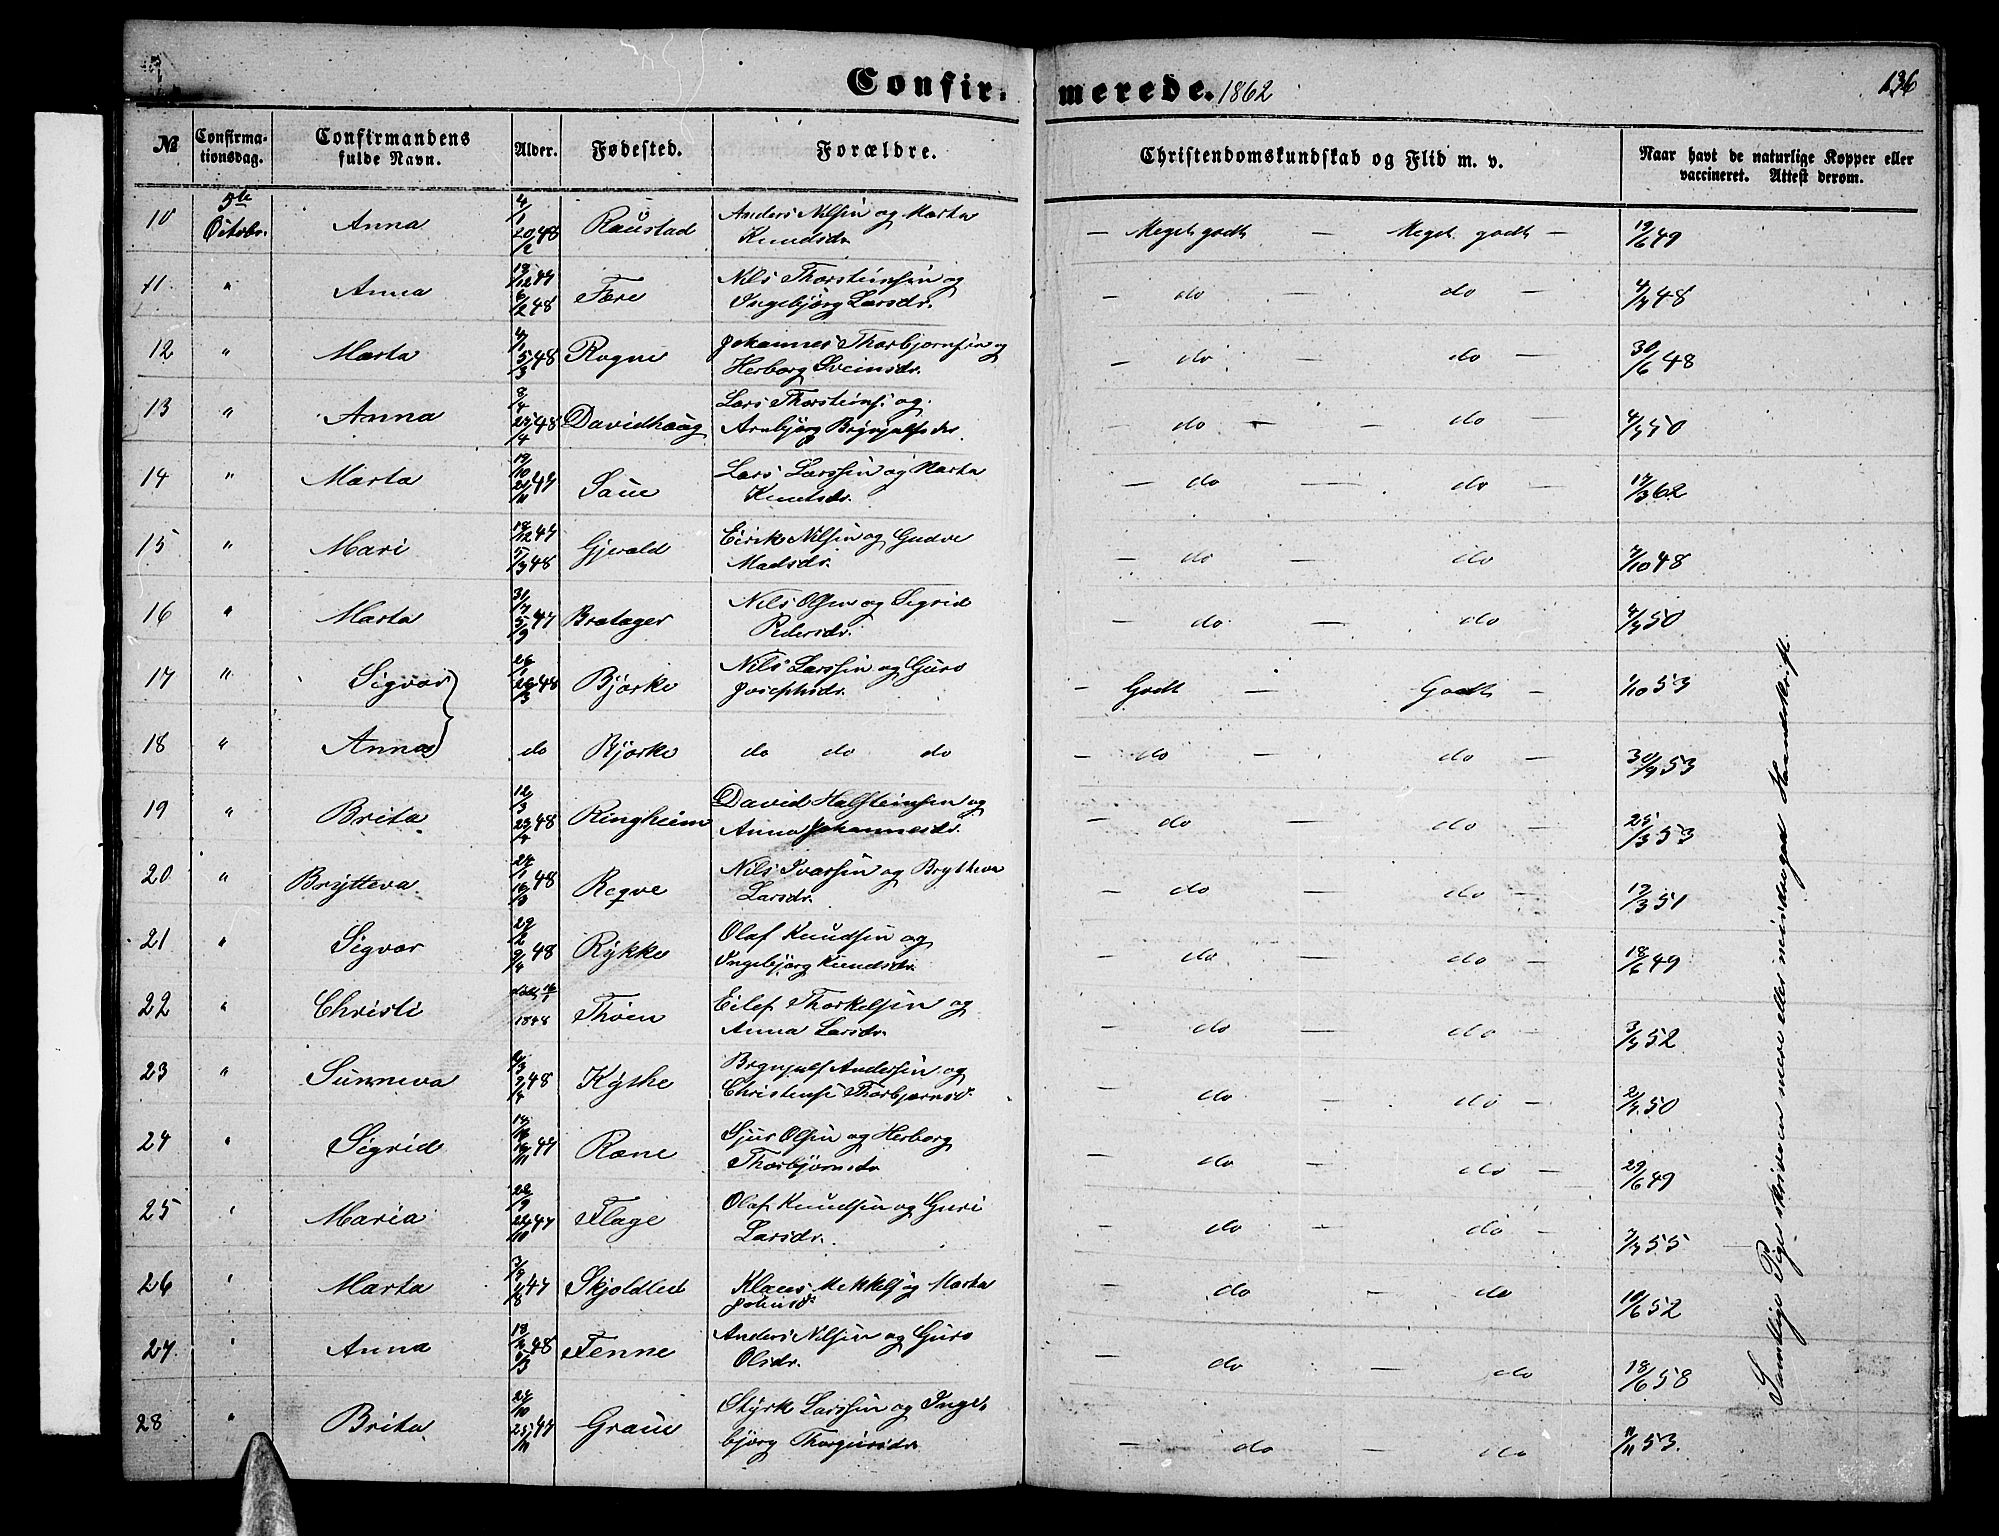 Confir- merede. 1862
136
№ Confirma-tionsdag. Confirmandens fulde Navn. Alder. Fødested. Forældre. Christendomskundskab og Flid m. v. Naar havt de naturlige Kopper eller vaccineret. Attest derom.
10 5te Octobr. Anna 4/1 20/2 48 Raustad Anders Nilssen og Marta Knudsdr. — Meget godt — Meget godt — 19/6 49
11 " Anna 19/12 47 6/2 48 Fære Nils Thorsteinsen og Ingebjørg Larsdr. — do — do — 4/7 48
12 " Marta 4/1 5/3 48 Rogne Johannes Thorbjørnsen og Herborg Sveinsdr. — do — do — 30/6 48
13 " Anna 8/4 24/4 48 Davidhaug Lars Thorsteins. og Arnbjørg Brynjulfsdr. — do — do — 4/7 50
14 " Marta 19/10 21/11 47 Saue Lars Larssen og Marta Knutsdr. — do — do — 17/3 62
15 " Mari 18/12 47 5/3 48 Gjerald Eirik Nilsen og Gudve Madsdr. — do — do 7/10 48
16 " Marta 31/7 5/9 47 Bratager Nils Olsen og Sigrid Pedersdr. — do — do 4/7 50
17 " Sigvor 26/1 26/3 48 Bjørke Nils Larssen og Guro Josephsdr. — Godt — Godt — 1/10 53
18 " Anna do Bjørke do do do — do — do — 30/9 53
19 " Brita 12/3 23/4 48 Ringheim David Halsteinsen og Anna Johannesdr. — do — do — 25/3 53
20 " Brytteva 24/1 16/3 48 Reqve Nils Ivarsen og Brytheva Larsdr. — do — do — 19/3 51
21 " Sigvor 29/2 9/4 48 Rykke Olaf Knudsen og Ingebjørg Knudsdr. — do — do — 18/6 49
22 " Christi 1848 Thoen Eilef Thorkelsen og Anna Larsdr. — do — do — 3/7 52
23 " Sunneva 2/3 9/4 48 Kythe Brynjulf Andersen og Christense Thorbjørnsd. — do — do — 2/7 50
24 " Sigrid 47 Rone Sjur Olsen og Herborg Thorbjørnsdr — do — do — 29/6 49
25 " Maria 22/9 24/10 47 Flage Olaf Knudsen og Guri Larsdr. — do — do — 7/7 55
26 " Marta 47 Skjoldlid Klaus Mikkels og Marta Johnsd. — do — do 10/6 52
27 " Anna 48 Tenne Anders Nilsen og Guro Olsdr. — do — do 18/6 58
28 " Brita 24/10 25/11 47 Graue Styrk Larssen og Inge-bjørg Thorgilsdr. — do — do 11/11 53.
Samtlige Pige skriven mere eller mindre god Haandskrift.